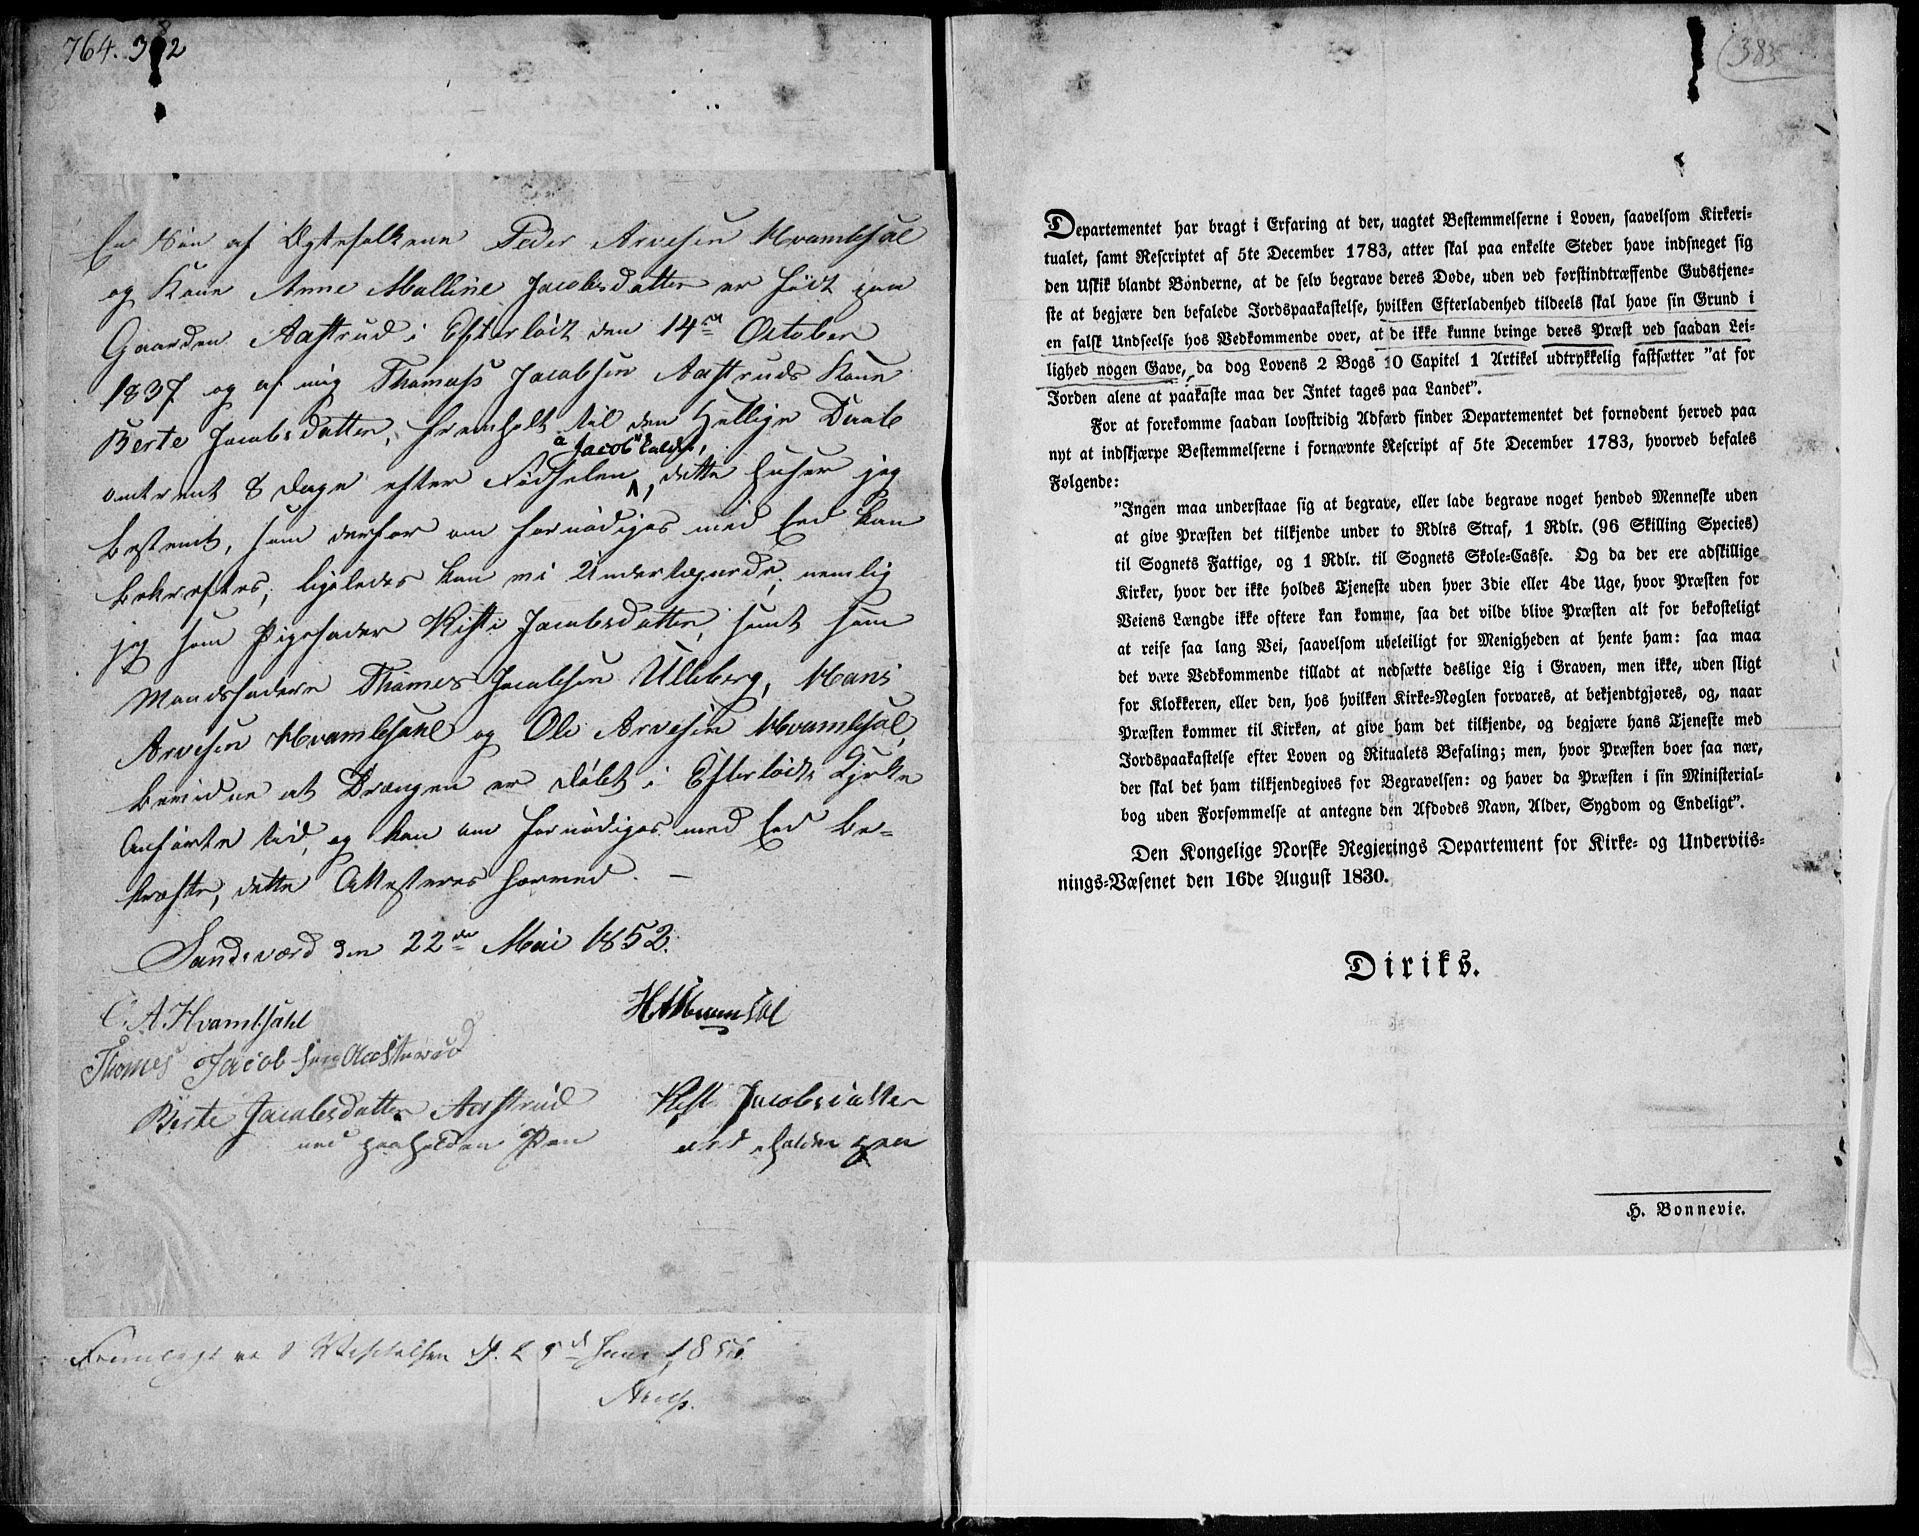 764. 382
En Søn af Ægtefolkene Peder Arvesen Hvambsal
og Kone Anne Malline Jacobsdatter er født paa
Gaarden Aastrud i Efterlødt den 14de October
1837 og af mig Thomas Jacobsen Aastruds Kone
Berte Jacobsdatter, fremholdt til den Hellige Daab
a Jacob kaldet,
omtrent 8 Dage efter Fødselen, dette husker jeg
bestemt, som derfor om fornødiges med Eed kan
bekreftes, ligeledes kan vi Undertegnede, nemlig
jeg som Pigefader Kisti Jacobsdatter, samt som
Mandsfadere Thomes Jacobsen Ulleberg, Hans
Arvesen Hvambsahl og Ole Arvesen Hvambsal,
bevidne at Drængen er døbt i Efterløds Kirke
Anførte tid, og kan om fornødiges med Eed be-
kræfte, dette Attesteres herved. —
Sandsværd den 22de Mai 1852.
O. A. Hvambsahl
HAHvamsal
Thomes Jacobsen Aasterud
Berte Jacobsdatter Aastrud
med paaholden Pen
Kist Jacobsdatter
med holden pen
Fremlagt ved
Juni
(385
Departementet har bragt i Erfaring at der, uagtet Bestemmelserne i Loven, saavelsom Kirkeri-
tualet, samt Rescriptet af 5te December 1783, atter skal paa enkelte Steder have indsneget sig
den Uskik blandt Bønderne, at de selv begrave deres Døde, uden ved førstindtræffende Gudstjene-
ste at begjære den befalede Jordspaakastelse, hvilken Efterladenhed tildeels skal have sin Grund i
en falsk Undseelse hos Vedkommende over, at de ikke kunne bringe deres Præst ved saadan Lei-
lighed nogen Gave, da dog Lovens 2 Bogs 10 Capitel 1 Artikel udtrykkelig fastsætter "at for
Jorden alene at paakaste maa der Intet tages paa Landet".
For at forekomme saadan lovstridig Adfærd finder Departementet det fornødent herved paa
nyt at indskjærpe Bestemmelserne i fornævnte Rescript af 5te December 1783, hvorved befales
Følgende:
"Ingen maa understaae sig at begrave, eller lade begrave noget hendød Menneske uden
at give Præsten det tilkjende under to Rdlrs Straf, 1 Rdlr. (96 Skilling Species)
til Sognets Fattige, og 1 Rdlr. til Sognets Skole-Casse. Og da der ere adskillige
Kirker, hvor der ikke holdes Tjeneste uden hver 3die eller 4de Uge, hvor Præsten for
Veiens Længde ikke oftere kan komme, saa det vilde blive Præsten alt for bekosteligt
at reise saa lang Vei, saavelsom ubeleiligt for Menigheden at hente ham: saa maa
det være Vedkommende tilladt at nedsætte deslige Lig i Graven, men ikke, uden sligt
for Klokkeren, eller den, hos hvilken Kirke-Nøglen forvares, at bekjendtgjøres, og, naar
Præsten kommer til Kirken, at give ham det tilkjende, og begjære hans Tjeneste med
Jordspaakastelse efter Loven og Ritualets Befaling; men, hvor Præsten boer saa nær,
der skal det ham tilkjendegives før Begravelsen: og haver da Præsten i sin Ministerial-
bog uden Forsømmelse at antegne den Afdødes Navn, Alder, Sygdom og Endeligt".
Den Kongelige Norske Regjerings Departement for Kirke- og Underviis-
nings-Væsenet den 16de August 1830.
Diriks.
H. Bonnevie.